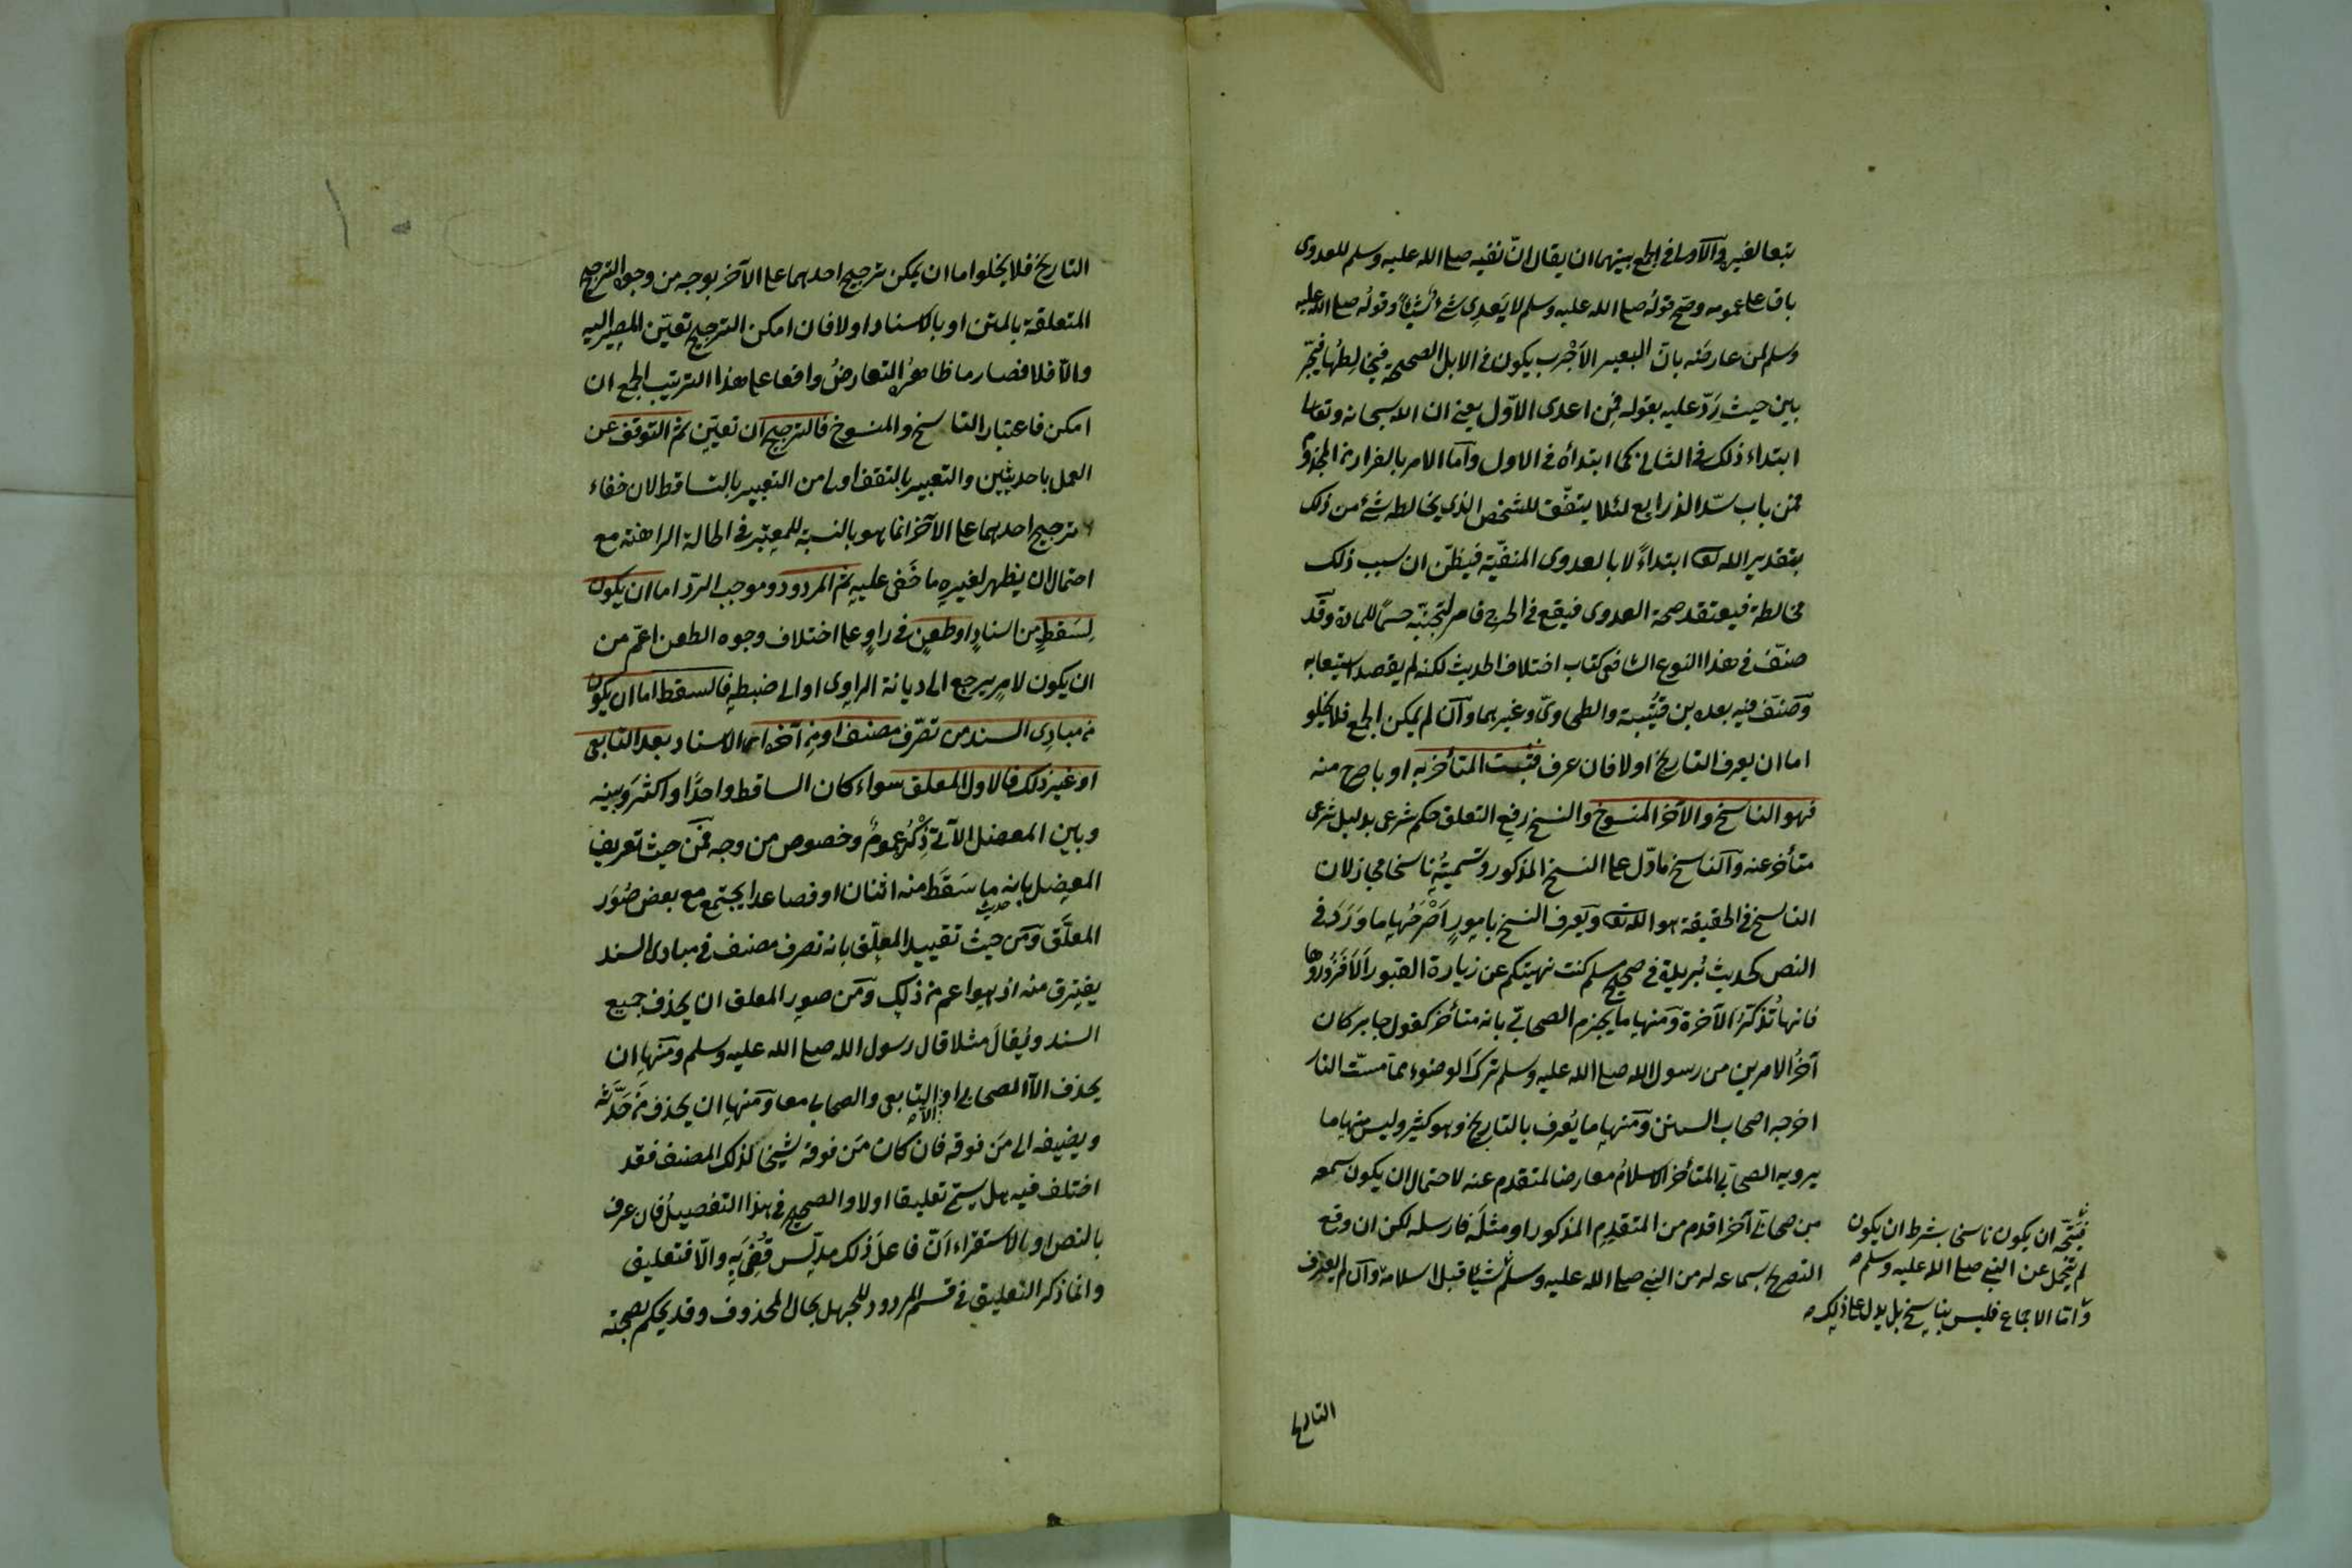 تبعا لغيره والاولى في الجمع بينهما ان يقال انّ نفيه صلى الله عليه وسلم للعدوى
باق على عمومه وصح قوله صلى الله عليه وسلم لا يُعدِي شئ شيئًا وقوله صلى الله عليه
وسلم لمن عارضَه بانّ البعير الاَجْرب يكون في الابل الصحيحة فيخالِطُها فتجر
بين حيث رَدّ عليه بقوله فمن اعدى الاوّل يعني ان الله سبحانه وتعالى
ابتداء ذلك في الثاني كما ابتدأه في الاول وآما الامر بالفرار من المجذوم
فمن باب سدّ الذرايع لئلا يتفّق للشخص الذي يخالطه شئ من ذلك
بتقدير الله تعا ابتداءً لا بالعدوى المنفيّة فيظنّ ان سبب ذلك
مخالطة فيعتقد صحة العدوى فيقع في الحرج فامر بتجنبّه حسمًا للمادة وقَد
صنّف في هذا النوع الشافعي كتاب اختلاف الحديث لكنه لم يقصد استيعابه
وصنّف فيه بعده بن قُتَيْبة والطحاويّ وغيرهما وآن لم يمكن الجمع فلا يخلو
اما ان يعرف التاريخ اولا فان عرف فثبت المتأخر به او باصرح منه
فهو الناسخ والآخر المنسوخ والنسخ رفع التعلق حكم شرعى بدليل شرعى
متأخر عنه وآلناسخ مادّل على النسخ المذكور وتسميتُه ناسخا مجاز لان
الناسخ في الحقيقة هو الله تعا ويعرف النسخ بامورٍ اَصْرَحُها ما وَرَدَ في
النص كحديث بُريدة في صحيح مسلم كنت نهيتكم عن زيارة القبور اَلاَ فَزُورُوها
فانها تُذكّرُ الآخرة ومنها ما يجزم الصحابيّ بانه متأخر كقول جابر كان
آخرُ الامرين من رسول الله صلى الله عليه وسلم تركَ الوضوء مما مسّت النار
اخرجه اصحاب السنن ومنها ما يُعرف بالتاريخ وهو كثير وليس منها ما
يرويه الصحابي المتأخر الاسلامُ معارضا لمتقدم عنه لاحتمال ان يكون سمعه
من صحابيّ آخر اقدم من المتقدِم المذكور او مثلَه فارسله لكن ان وقع
التصريح بسماعه له من النبي صلى الله عليه وسلم شيئًا قبل اسلامه وآن لم يعرف
فيتّجه ان يكون ناسخا بشرط ان يكون
لم يتحمل عن النبي صلى الله عليه وسلم
وامّا الاجماع فليس بناسخ بل يدل على ذلك
التاريخ
التاريخ فلا يخلوا اما ان يمكن ترجيح احدهما على الآخر بوجه من وجوه الترجيح
المتعلقة بالمتن او بالاسناد اولا فان امكن الترجيح تعيّن المصير اليه
والاّ فلا فصار ما ظاهرُه التعارضُ واقعا على هذا الترتيب الجمع ان
امكن فاعتبار الناسخ والمنسوخ فالترجيح آن تعيّن ثم التوقف عن
العمل باحديثين والتعبير بالتوقف اولى من التعبير بالتساقط لان خفاء
ترجيح احدهما على الآخر انما هو بالنسبة للمعتبر في الحالة الراهنة مع
احتمال ان يظهر لغيره ما خَفى عليه ثم المردود وموجب الردّ اما ان يكون
لِسَقطٍ من اسنادٍ او طعنٍ في راوٍ على اختلاف وجوه الطعن اعمّ من
ان يكون لامر يرجع الى ديانة الراوى او الى ضبطه فالسقط اما ان يكون
من مبادِى السند من تصّرف مصنف او من آخره اى الاسناد بعد التابعى
او غير ذلك فالاول المعلق سواء كان الساقط واحدًا او اكثر وَبينه
وبين المعضل الآتى ذِكْرُه عمومٌ وخصوص من وجه فمن حيث تعريف
المعضل بانه ما سَقَط منه اثنان او فصاعدا يجتمع مع بعض صُوَر
حديث
المعلَّق وَمن حيث تقييد المعلّق بانه تصرف مصنف في مبادى السند
يفترق منه اذ هو اعم من ذلك وَمن صور المعلق ان يحذف جميع
السند ويُقالَ مثلا قال رسول الله صلى الله عليه وسلم ومَنها ان
يحذف الاّ الصحابي او الاّ التابعى والصحابي معا وَمنها ان يحذف مَن حَدَّثه
ويضيفه الى مَن فوقه فان كان مَن فوقه شيخا لذلك المصنف فقد
اختلف فيه هل يسمّى تعليقا اولا والصحيح في هذا التفصيلُ فان عرف
بالنص او بالاستقراء اَنّ فاعلَ ذلك مدلّس قُضِىَ به والاّ فتعليق
وانما ذكر التعليق في قسم المردود للجهل بحال المحذوف وقد يحكم بصحته